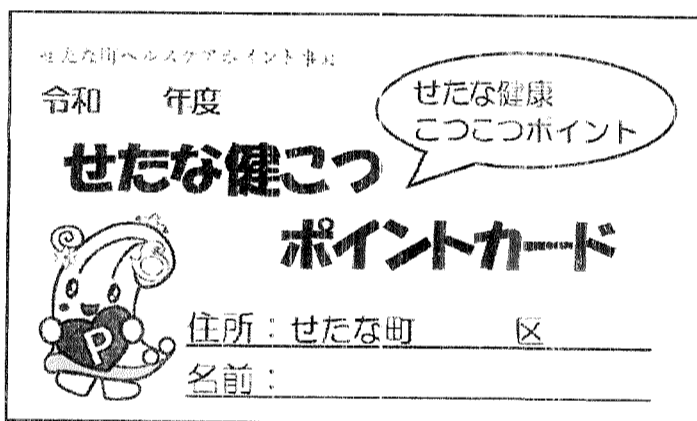 せたな町ヘルスケアポイント事業
令和　　年度
せたな健康
こつこつポイント
せたな健こつ
ポイントカード
P
住所：せたな町　　　区
名前：